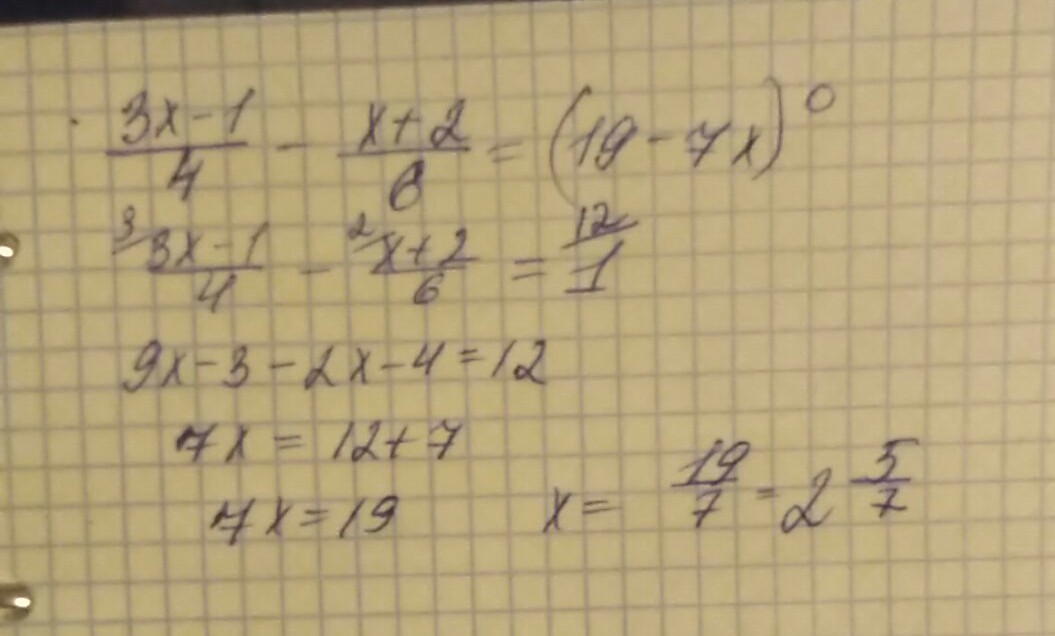 3x-1/4 - x+2/6 = (19-7x)^0
3/ 3x-1/4 - 2/ x+2/6 = 12/ 1
9x-3-2x-4=12
7x = 12+7
7x=19 x= 19/7 = 2 5/7